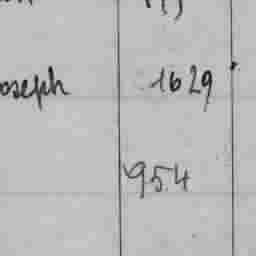 oseph 1629
954